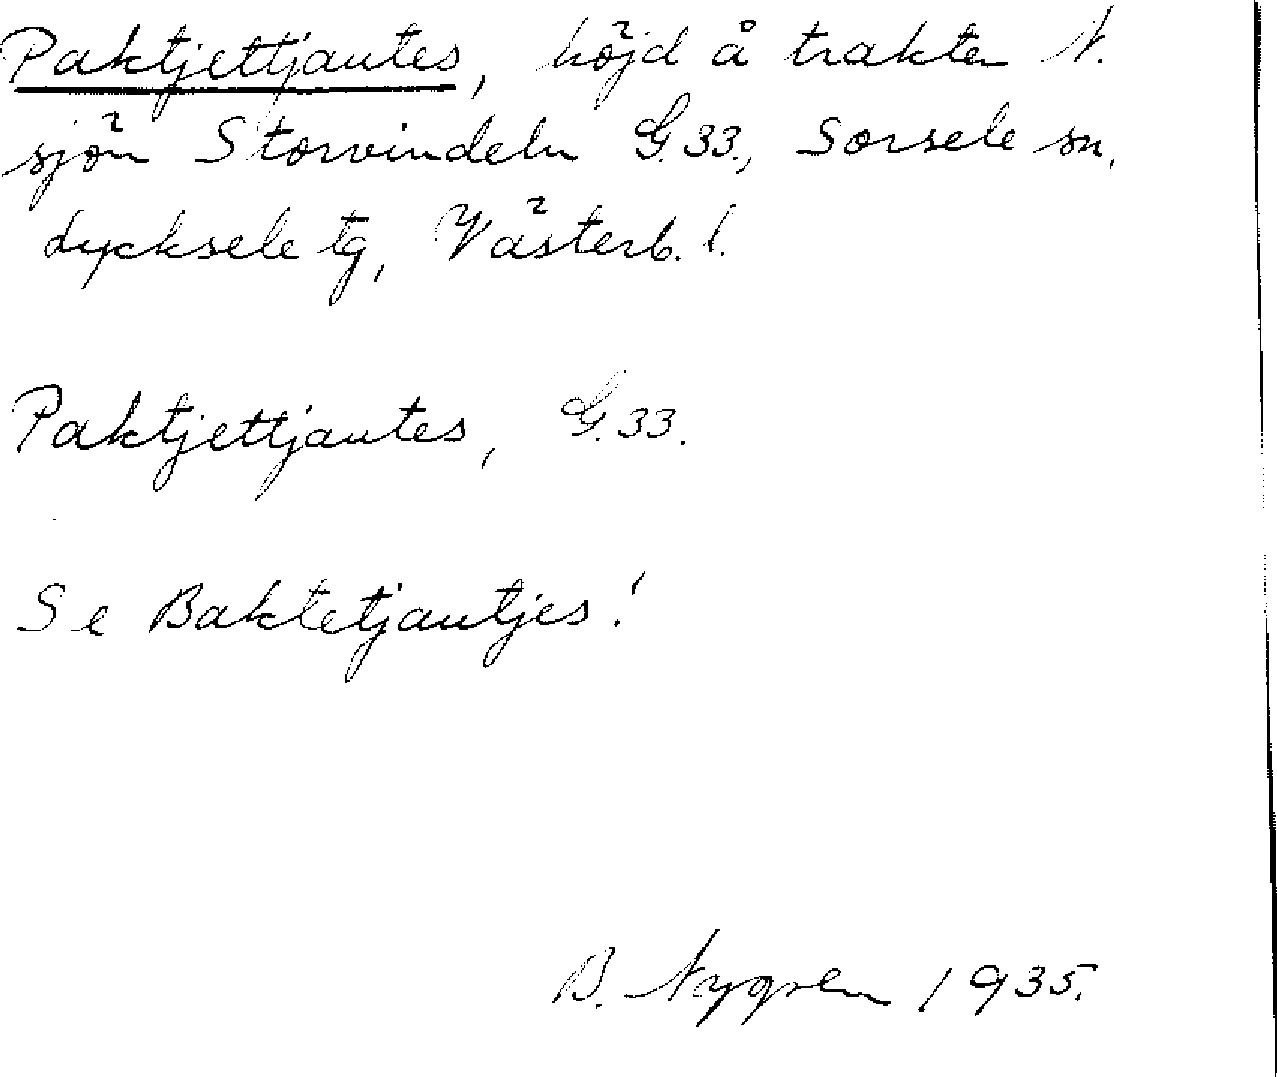 Paktjettjautes, höjd å trakten N.
sjön Storvindeln G.33., Sorsele sn,
Lycksele tg, Västerb. l.
Paktjettjautes, G.33.
Se Baktetjautjes!
B. Nygren 1935.